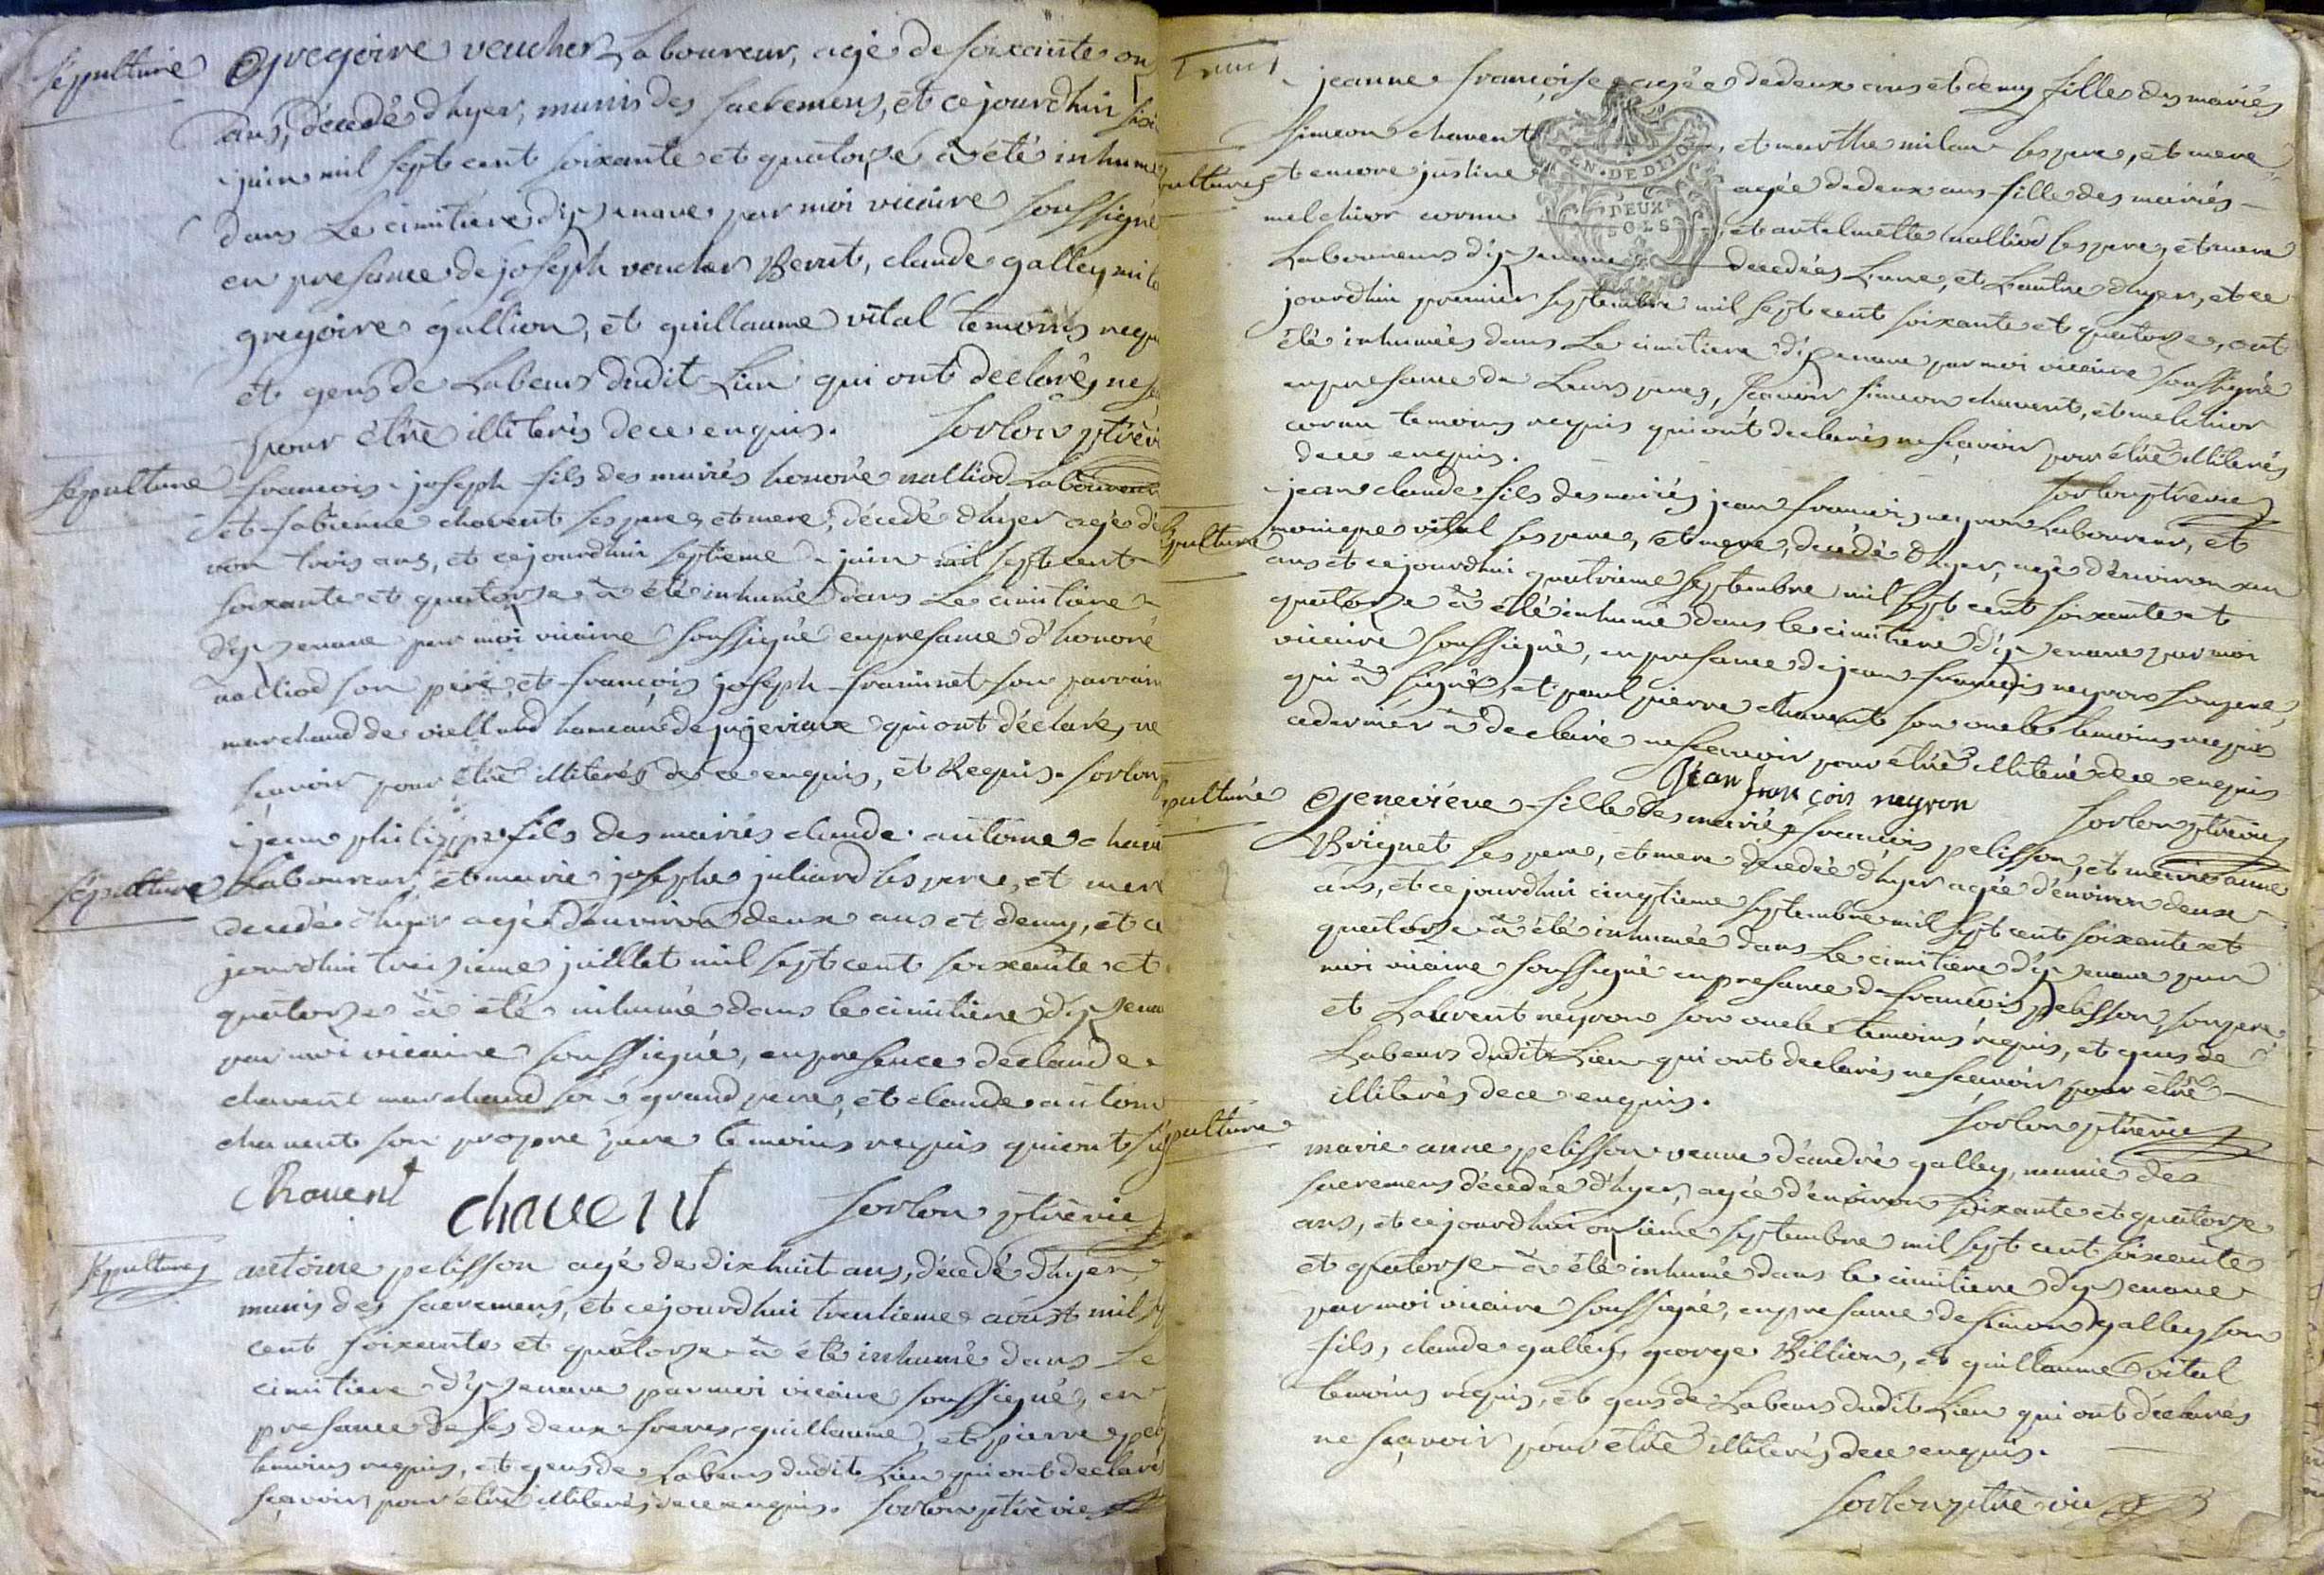 Sepulture
Gregoire vencher Laboureur, agé de soixante on
ans, décedé d'hyer, munis des sacremens, et ce jourdhui sixi
juin mil sept cent soixante et quatorze à été inhumé
dans Le cimitiere d'izenave par moi vicaire soussigné
en presance de joseph vencher Berut, claude galley
gregoire gallion, et guillaume vital temoins requ
et gens de Labeur dudit Lieu qui ont declarés ne
pour être illiterés de ce enquis. sorlon ptre
Sepulture
francois joseph fils des mariés honoré nalliod Laboureur
et fabienne chavent ses pere, et mere, décedé d'hyer agé d'e
ron trois ans, et ce jourdhui septieme juin mil sept cent
soixante et quatorze à été inhumé dans Le cimitiere
d'izenave par moi vicaire soussigné en presance d'honoré
nalliod son pere, et françois joseph fraininet son parrain
marchand de vielland hameau de jujeriaux qui ont déclaré, ne
scavoir pour être illiterés de ce enquis, et Requis. sorlon
Sepulture
jean philippe fils des mariés claude antoine chav
Laboureur, et marie josephe juliard ses pere, et mere
decedé d'hyer agé d'environ deux ans et demy, et ce
jourdhui treizieme juillet mil sept cent soixante et
quatorze à été inhumé dans le cimitiere d'izenav
par moi vicaire soussigné, en presence de claude
chavent marchand son grand pere, et claude antoin
chavent son propre pere temoins requis qui ont sig
Chavent chavent sorlon ptre vic
Sepulture
antoine pelisson agé de dix huit ans, décedé d'hyer,
munis des sacremens, et ce jourdhui trentieme aoust mil s
cent soixante et quatorze à été inhumé dans Le
cimitiere d'izenave par moi vicaire soussigné, en
presance de ses deux freres, guillaume, et pierre pel
temoins requis, et gens de Labeur dudit Lieu qui ont declarés
scavoir pour être illiterés de ce enquis. sorlon ptre vic
jeanne françoise agée de deux ans et demy fille des mariés
simeon chavent, et marthe milan ses pere, et mere
pultures
et encore justine agée de deux ans fille des mariés
melchior cornu, et antelmette nalliod ses pere, et mere
Laboureurs d'izenave decedées L'une, et L'autre d'hyer, et ce
jourdhui premier septembre mil sept cent soixante et quatorze, ont
été inhumées dans Le cimitiere d'izenave par moi vicaire soussigné
en presance de Leurs peres, scavoir simeon chavent, et melchior
cornu temoins requis qui ont declarés ne scavoir pour être illiterés
de ce enquis.
sorlon ptre vic
GEN. DE DIJON
DEUX
SOLS
pulture
jean claude fils des mariés jean francois neyron Laboureur, et
monique vital ses pere, et mere, decedé d'hyer, agé d'environ un
ans et ce jourdhui quatrieme septembre mil sept cent soixante et
quatorze à été inhumé dans le cimitiere d'izenave par moi
vicaire soussigné, en presance de jean francois neyron son pere,
qui à signé, et paul pierre chavent son oncle temoins requis
ce dernier à declaré ne scavoir pour être illiteré de ce enquis
jean françois neyron
sorlon ptre vic
pulture
Geneviéve fille des mariés francois pelisson, et marie anne
Brignet ses pere, et mere decedée d'hyer agée d'environ deux
ans, et ce jourdhui cinqtieme septembre mil sept cent soixante et
quatorze à été inhumée dans Le cimitiere d'izenave par
moi vicaire soussigné en presance de francois pelisson, son pere,
et Laurent neyron son oncle temoins requis, et gens de
Labeurs dudit Lieu qui ont declarés ne scavoir pour être
illiterés de ce enquis.
sorlon ptre vic
pulture
marie anne pelisson veuve d'andré galley, munie des
sacremens décedée d'hyer, agée d'environ soixante et quatorze
ans, et ce jourdhui onzieme septembre mil sept cent soixante
et quatorze à été inhumé dans le cimitiere d'izenave
par moi vicaire soussigné, en presance de simon galley son
fils, claude galley, george Billion, et guillaume vital
temoins requis, et gens de Labeurs dudit Lieu qui ont déclarés
ne scavoir pour être illiterés de ce enquis.
sorlon ptre vic